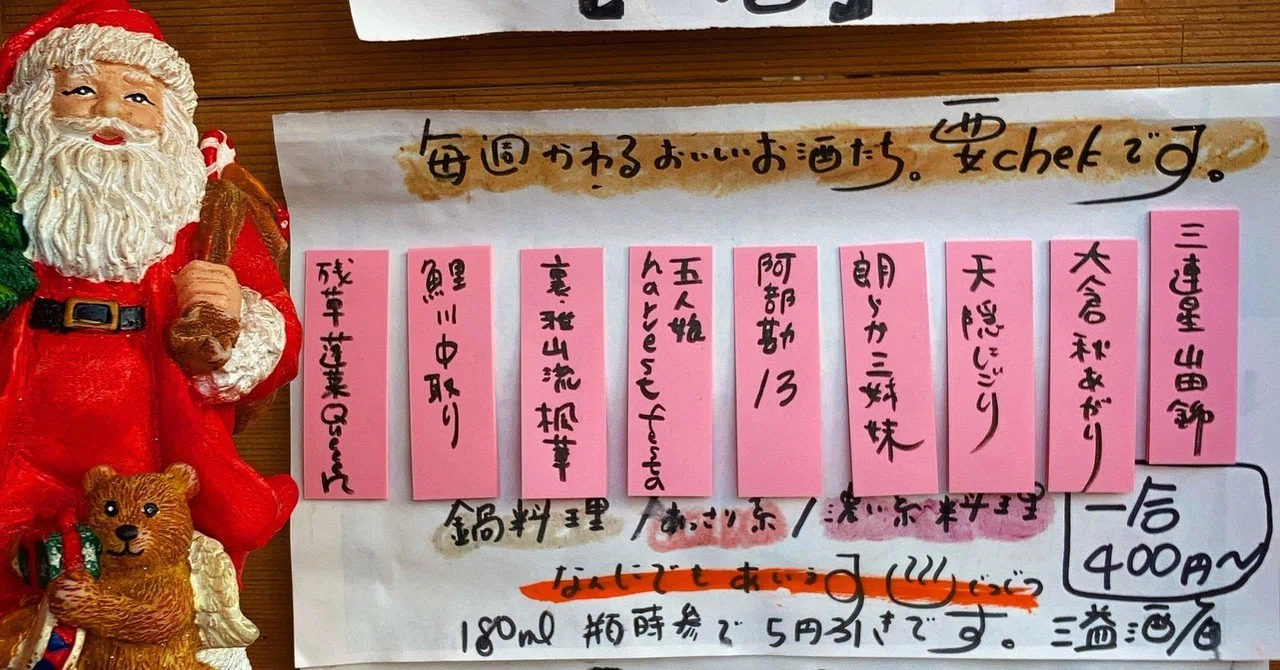 毎週かわるおいしいお酒たち。要chekです。
三連星 山田錦
大倉 秋あがり
天隠にごり
朗らか三姉妹
阿部勘 13
五人娘
harvest festa
裏・雅山流 楓華
鯉川中取り
残草蓬莱Queen
鍋料理/あっさり系/濃い系料理
一合
400円〜
なんにでもあいます
180ml 瓶持参で 5円引きです。三益酒店